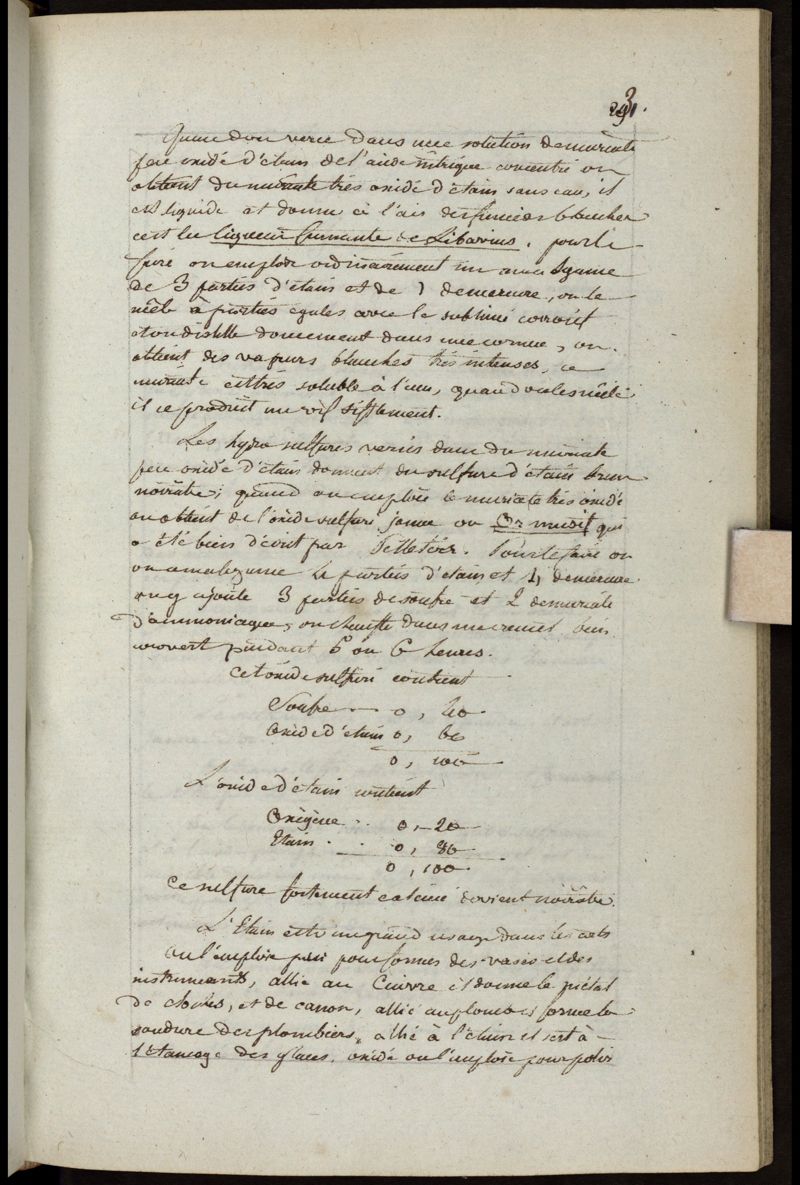 291.
Quand on verse dans une solution de muriate
peu oxidé d'étain de l'acide nitrique concentré on
obtient du muriate très oxidé d'étain sans eau, il
est liquide et donne à l'air des fumées blanches
c'est la liqueur fumante de Libavius. pour le
faire on emploie ordinairement un amalgame
de 3 parties d'étain et de 1 de mercure, on le
mêle à parties égales avec le sublimé corrosif
et on distille doucement dans une cornue, on
obtient des vapeurs blanches très intenses, ce
muriate est très soluble à l'eau, quand on les mêle
il se produit un vif sifflement.
Les hydrosulfures versés dans du muriate
peu oxidé d'étain donnent du sulfure d'étain brun
noirâtre; quand on emploie le muriate très oxidé
on obtient de l'oxide sulfuré jaune ou Or musif qui
a été bien décrit par Pelletier. Pour le faire on
on amalgame 4 parties d'étain et 1 de mercure
on y ajoute 3 parties de soufre et 2 de muriate
d'ammoniaque, on chauffe dans un creuset bien
couvert pendant 5 ou 6 heures.
Cet oxide sulfuré contient
Soufre - - 0, 40
Oxide d'étain 0, 60
0, 100
L'oxide d'étain contient
Oxigène . . 0, 20
Etain . . 0, 80
0, 100
Ce sulfure fortement calciné devient noirâtre.
L'Etain est d'un grand usage dans les arts
on l'emploie pur pour former des vases et des
instruments, allié au Cuivre il donne le métal
de cloches, et de canon, allié au plomb il forme la
soudure des plombiers, allié à l'étain il sert à
l'étamage des glaces. oxidé on l'emploie pour polir